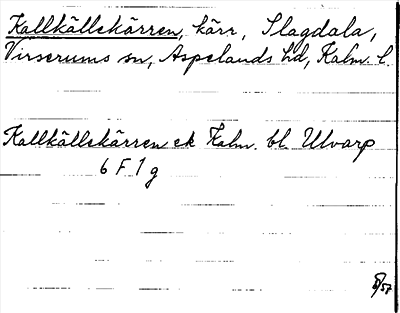 Kallkällekärren, kärr, Slagdala,
Virserums sn, Aspelands hd, Kalm. l.
Kallkällekärren ek Kalm. bl. Ulvarp
6 F 1 g